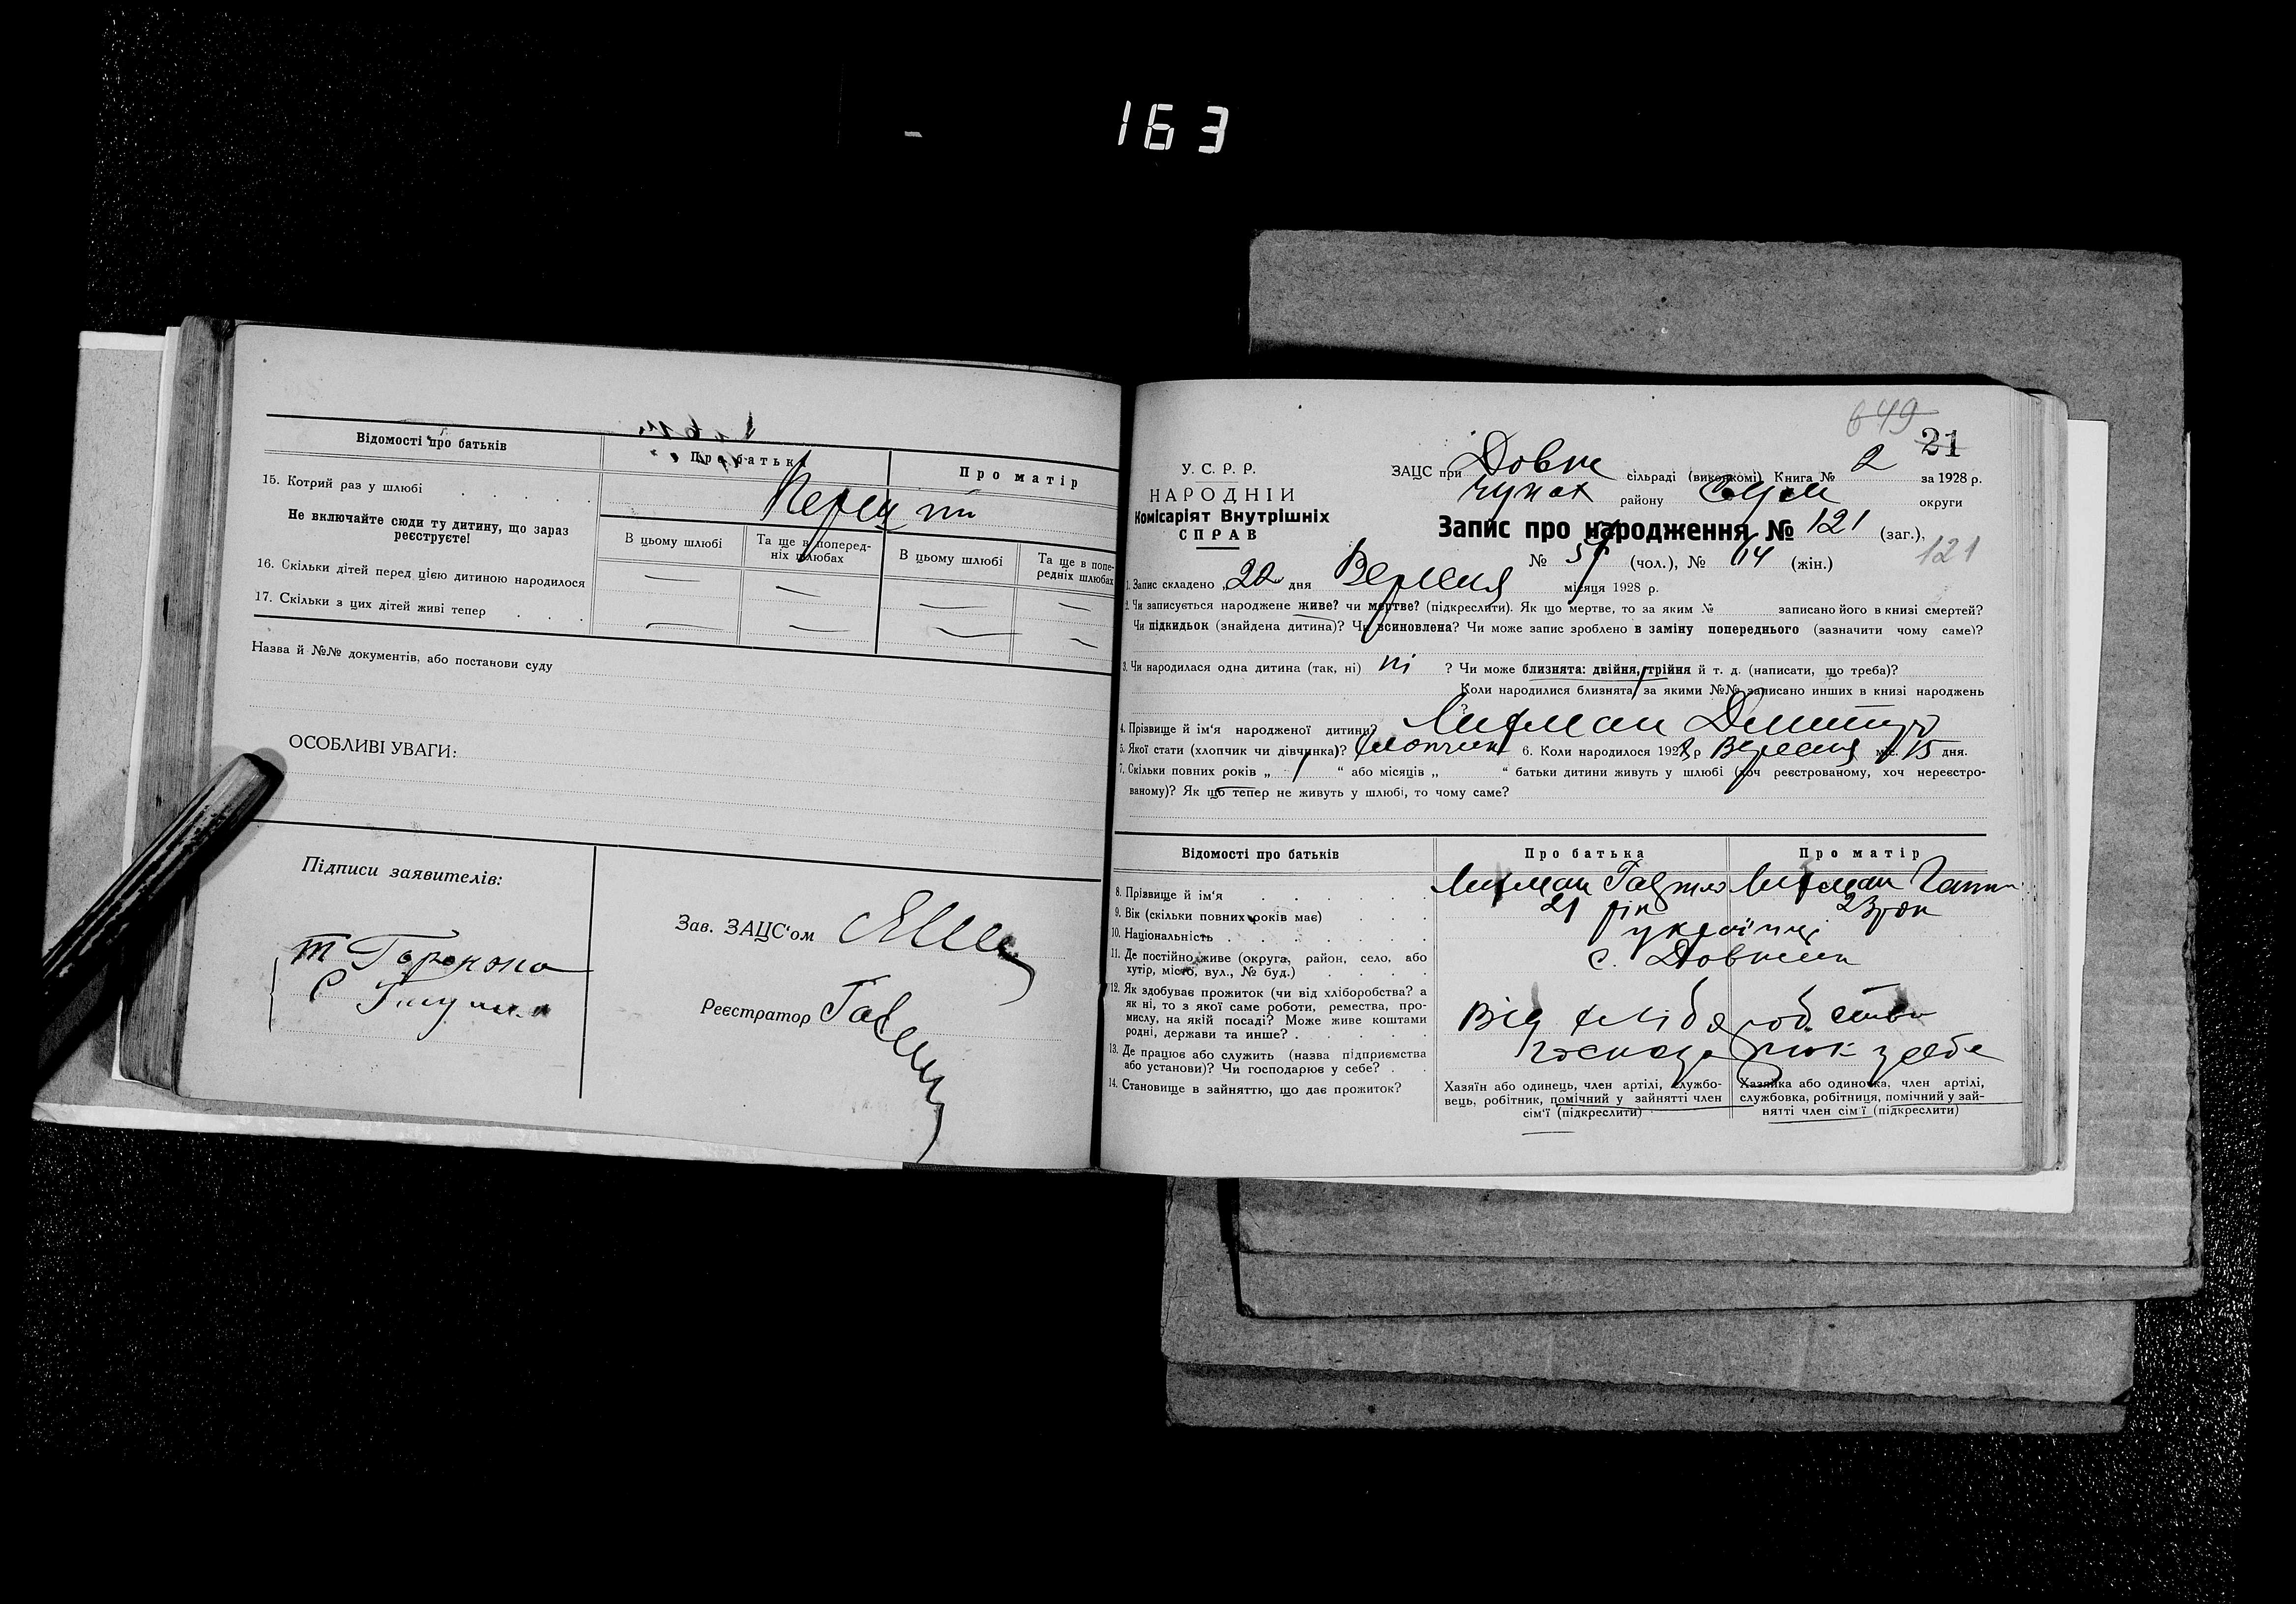 163
Відомості про батьків
Про батька
Про матір
15. Котрий раз у шлюбі
Не включайте сюди ту дитину, що зараз
реєструєте!
В цьому шлюбі
Та ще в поперед-
ніх шлюбах
В цьому шлюбі
Та ще в попе-
редніх шлюбах
16. Скільки дітей перед цією дитиною народилося
17. Скільки з цих дітей живі тепер
Назва й №№ документів, або постанови суду
ОСОБЛИВІ УВАГИ:
Підписи заявителів:
Зав. ЗАЦС'ом
Реєстратор
649
21
У. С. Р. Р.
НАРОДНІЙ
Комісаріят Внутрішніх
СПРАВ
ЗАЦС при Довж сільраді (виконкомі) Книга № 2 за 1928 р.
району округи
Запис про народження № 121 (заг.),
121
№ 57 (чол.), № 64 (жін.)
1. Запис складено „22 дня Вересня місяця 1928 р.
2. Чи записується народжене живе? чи мертве? (підкреслити). Як що мертве, то за яким № записано його в книзі смертей?
Чи підкидьок (знайдена дитина)? Чи всиновлена? Чи може запис зроблено в заміну попереднього (зазначити чому саме)?
3. Чи народилася одна дитина (так, ні) ні ? Чи може близнята: двійня, трійня й т. д. (написати, що треба)?
Коли народилися близнята, за якими №№ записано инших в книзі народжень
?
4. Прізвище й ім'я народженої дитини? Дмитро
5. Якої стати (хлопчик чи дівчинка)? хлопчик 6. Коли народилося 1928 р Вересня міс. 15 дня.
7. Скільки повних років „ “ або місяців „ “ батьки дитини живуть у шлюбі (хоч реєстрованому, хоч нереєстро-
ваному)? Як що тепер не живуть у шлюбі, то чому саме?
Відомості про батьків
Про батька
Про матір
8. Прізвище й ім'я
9. Вік (скільки повних років має) 21 рік 23 рок
10. Національність українці
11. Де постійно живе (округа, район, село, або
хутір, місто, вул., № буд.)
с.
12. Як здобуває прожиток (чи від хліборобства? а
як ні, то з якої саме роботи, ремества, про-
мислу, на якій посаді? Може живе коштами
родні, держави та инше?
Від хліборобства
13. Де працює або служить (назва підприємства
або установи)? Чи господарює у себе?
14. Становище в зайняттю, що дає прожиток?
Хазяїн або одинець, член артілі, службо-
вець, робітник, помічний у зайнятті член
сім'ї (підкреслити)
Хазяйка або одиночка, член артілі,
службовка, робітниця, помічний у зай-
нятті член сім'ї (підкреслити)